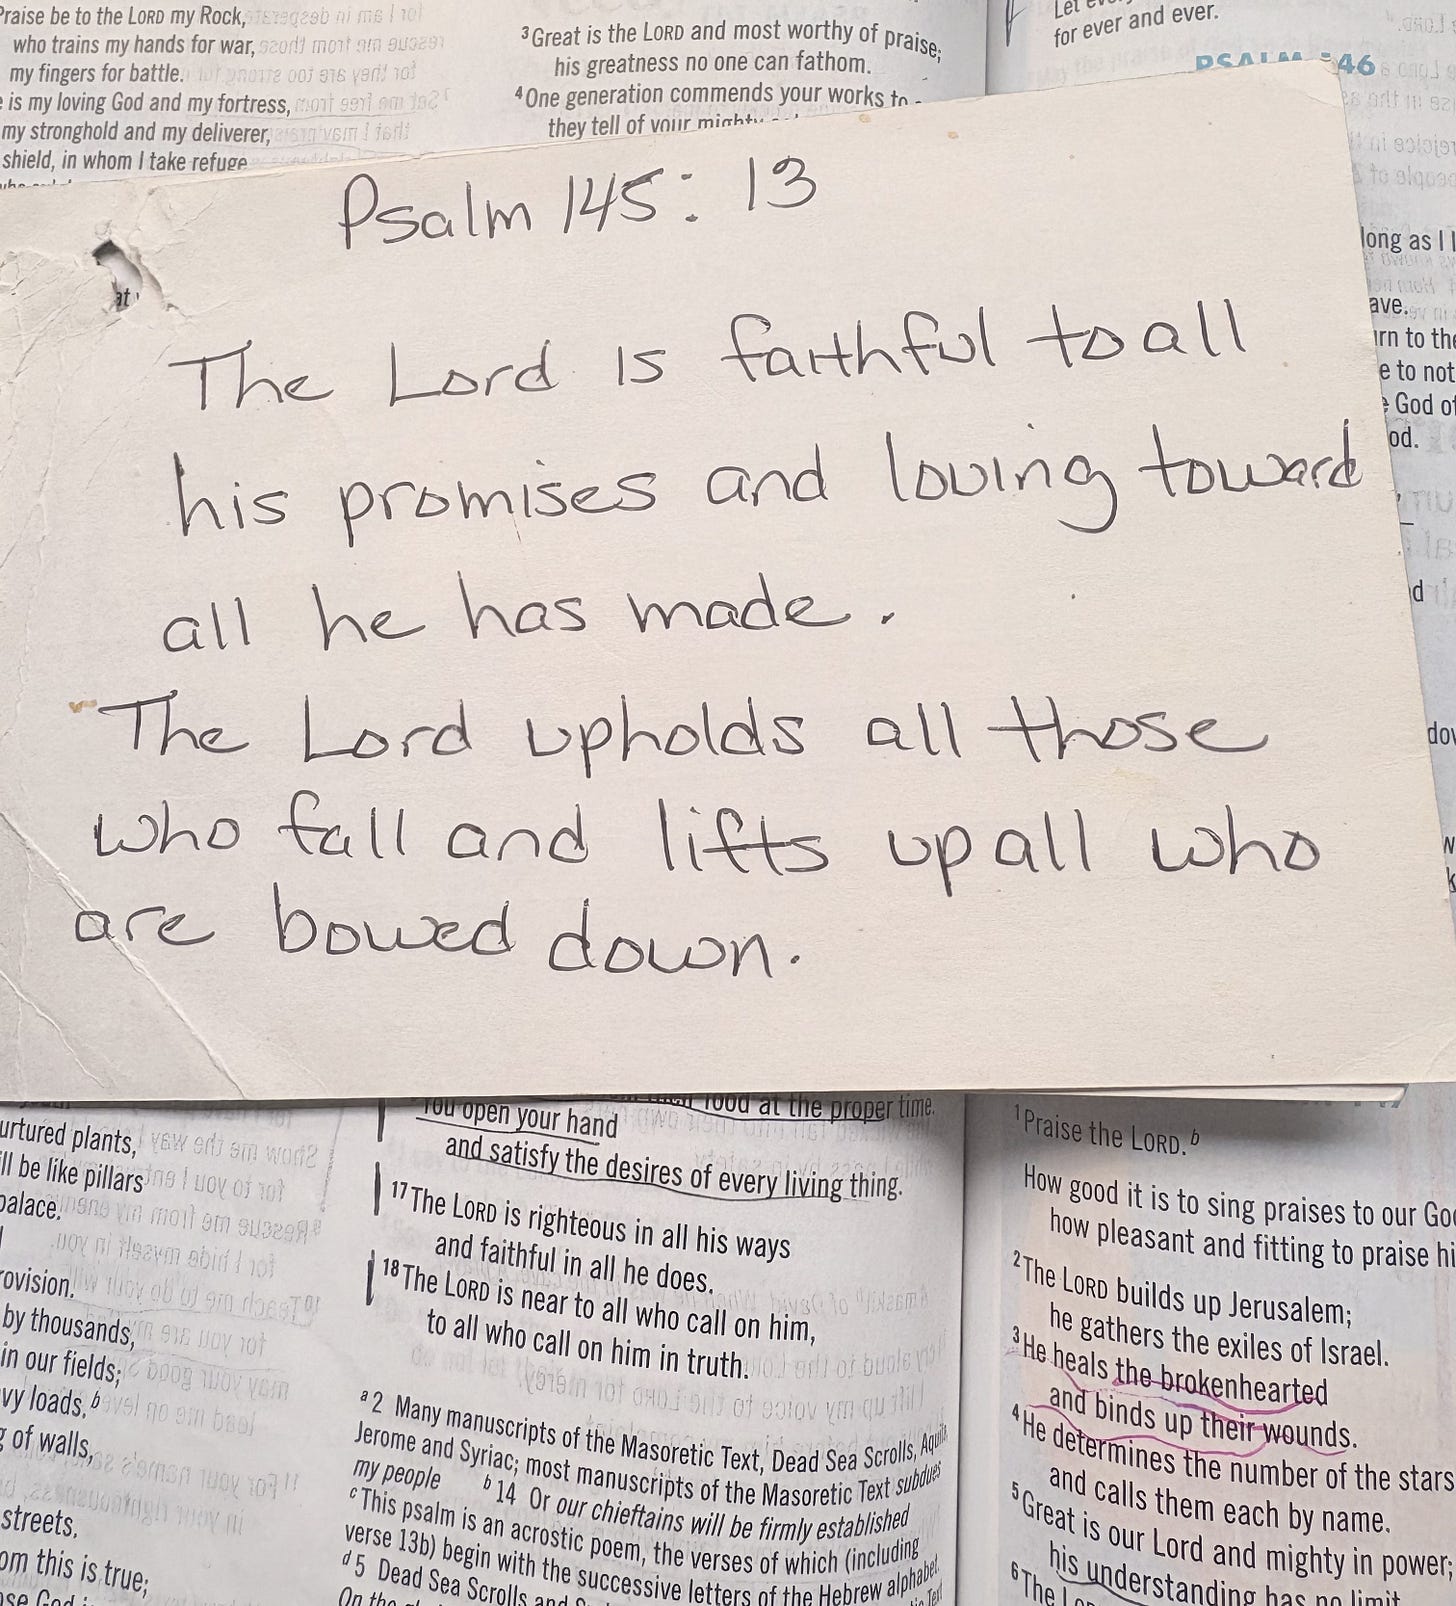 Praise be to the LORD my Rock,
who trains my hands for war,
my fingers for battle.
is my loving God and my fortress,
my stronghold and my deliverer,
shield, in whom I take refuge
3 Great is the LORD and most worthy of praise;
his greatness no one can fathom.
4 One generation commends your works to
they tell of your mighty
Let
for ever and ever.
PSALM 146
Psalm 145: 13
The Lord is faithful to all
his promises and loving toward
all he has made.
The Lord upholds all those
who fall and lifts up all who
are bowed down.
long as I
to the
e to not
God of
urtured plants,
ll be like pillars
palace.
rovision.
by thousands,
in our fields;
vy loads. b
g of walls,
streets,
om this is true;
You open your hand
and satisfy the desires of every living thing.
17 The LORD is righteous in all his ways
and faithful in all he does.
18 The LORD is near to all who call on him,
to all who call on him in truth.
a 2 Many manuscripts of the Masoretic Text, Dead Sea Scrolls, Aquila,
Jerome and Syriac; most manuscripts of the Masoretic Text subdues
my people b 14 Or our chieftains will be firmly established
c This psalm is an acrostic poem, the verses of which (including
verse 13b) begin with the successive letters of the Hebrew alphabet.
d 5 Dead Sea Scrolls and
On the
food at the proper time.
1 Praise the LORD. b
How good it is to sing praises to our God
how pleasant and fitting to praise hi
2 The LORD builds up Jerusalem;
he gathers the exiles of Israel.
3 He heals the brokenhearted
and binds up their wounds.
4 He determines the number of the stars
and calls them each by name.
5 Great is our Lord and mighty in power;
his understanding has no limit
6 The